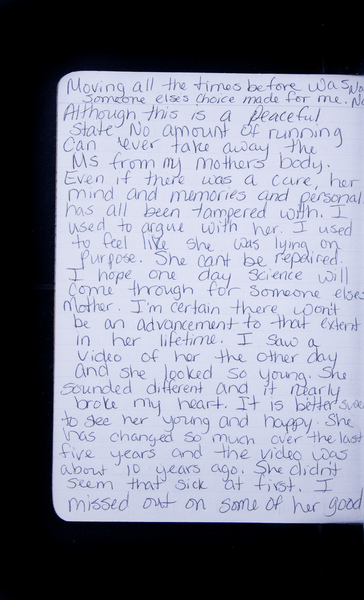 Moving all the times before was No
someone elses choice made for me. No
Although this is a peaceful
state No amount of running
Can ever take away the
MS from my mothers body.
Even if there was a cure, her
mind and memories and personal
has all been tampered with. I
used to argue with her. I used
to feel like she was lying on
purpose. She cant be repaired.
I hope one day science will
come through for someone elses
Mother. I'm certain there won't
be an advancement to that extent
in her lifetime. I saw a
video of her the other day
and she looked so young. She
sounded different and it nearly
broke my heart. It is better
to see her young and happy. She
has changed so much over the last
five years and the video was
about 10 years ago. She didn't
seem that sick at first. I
missed out on some of her good